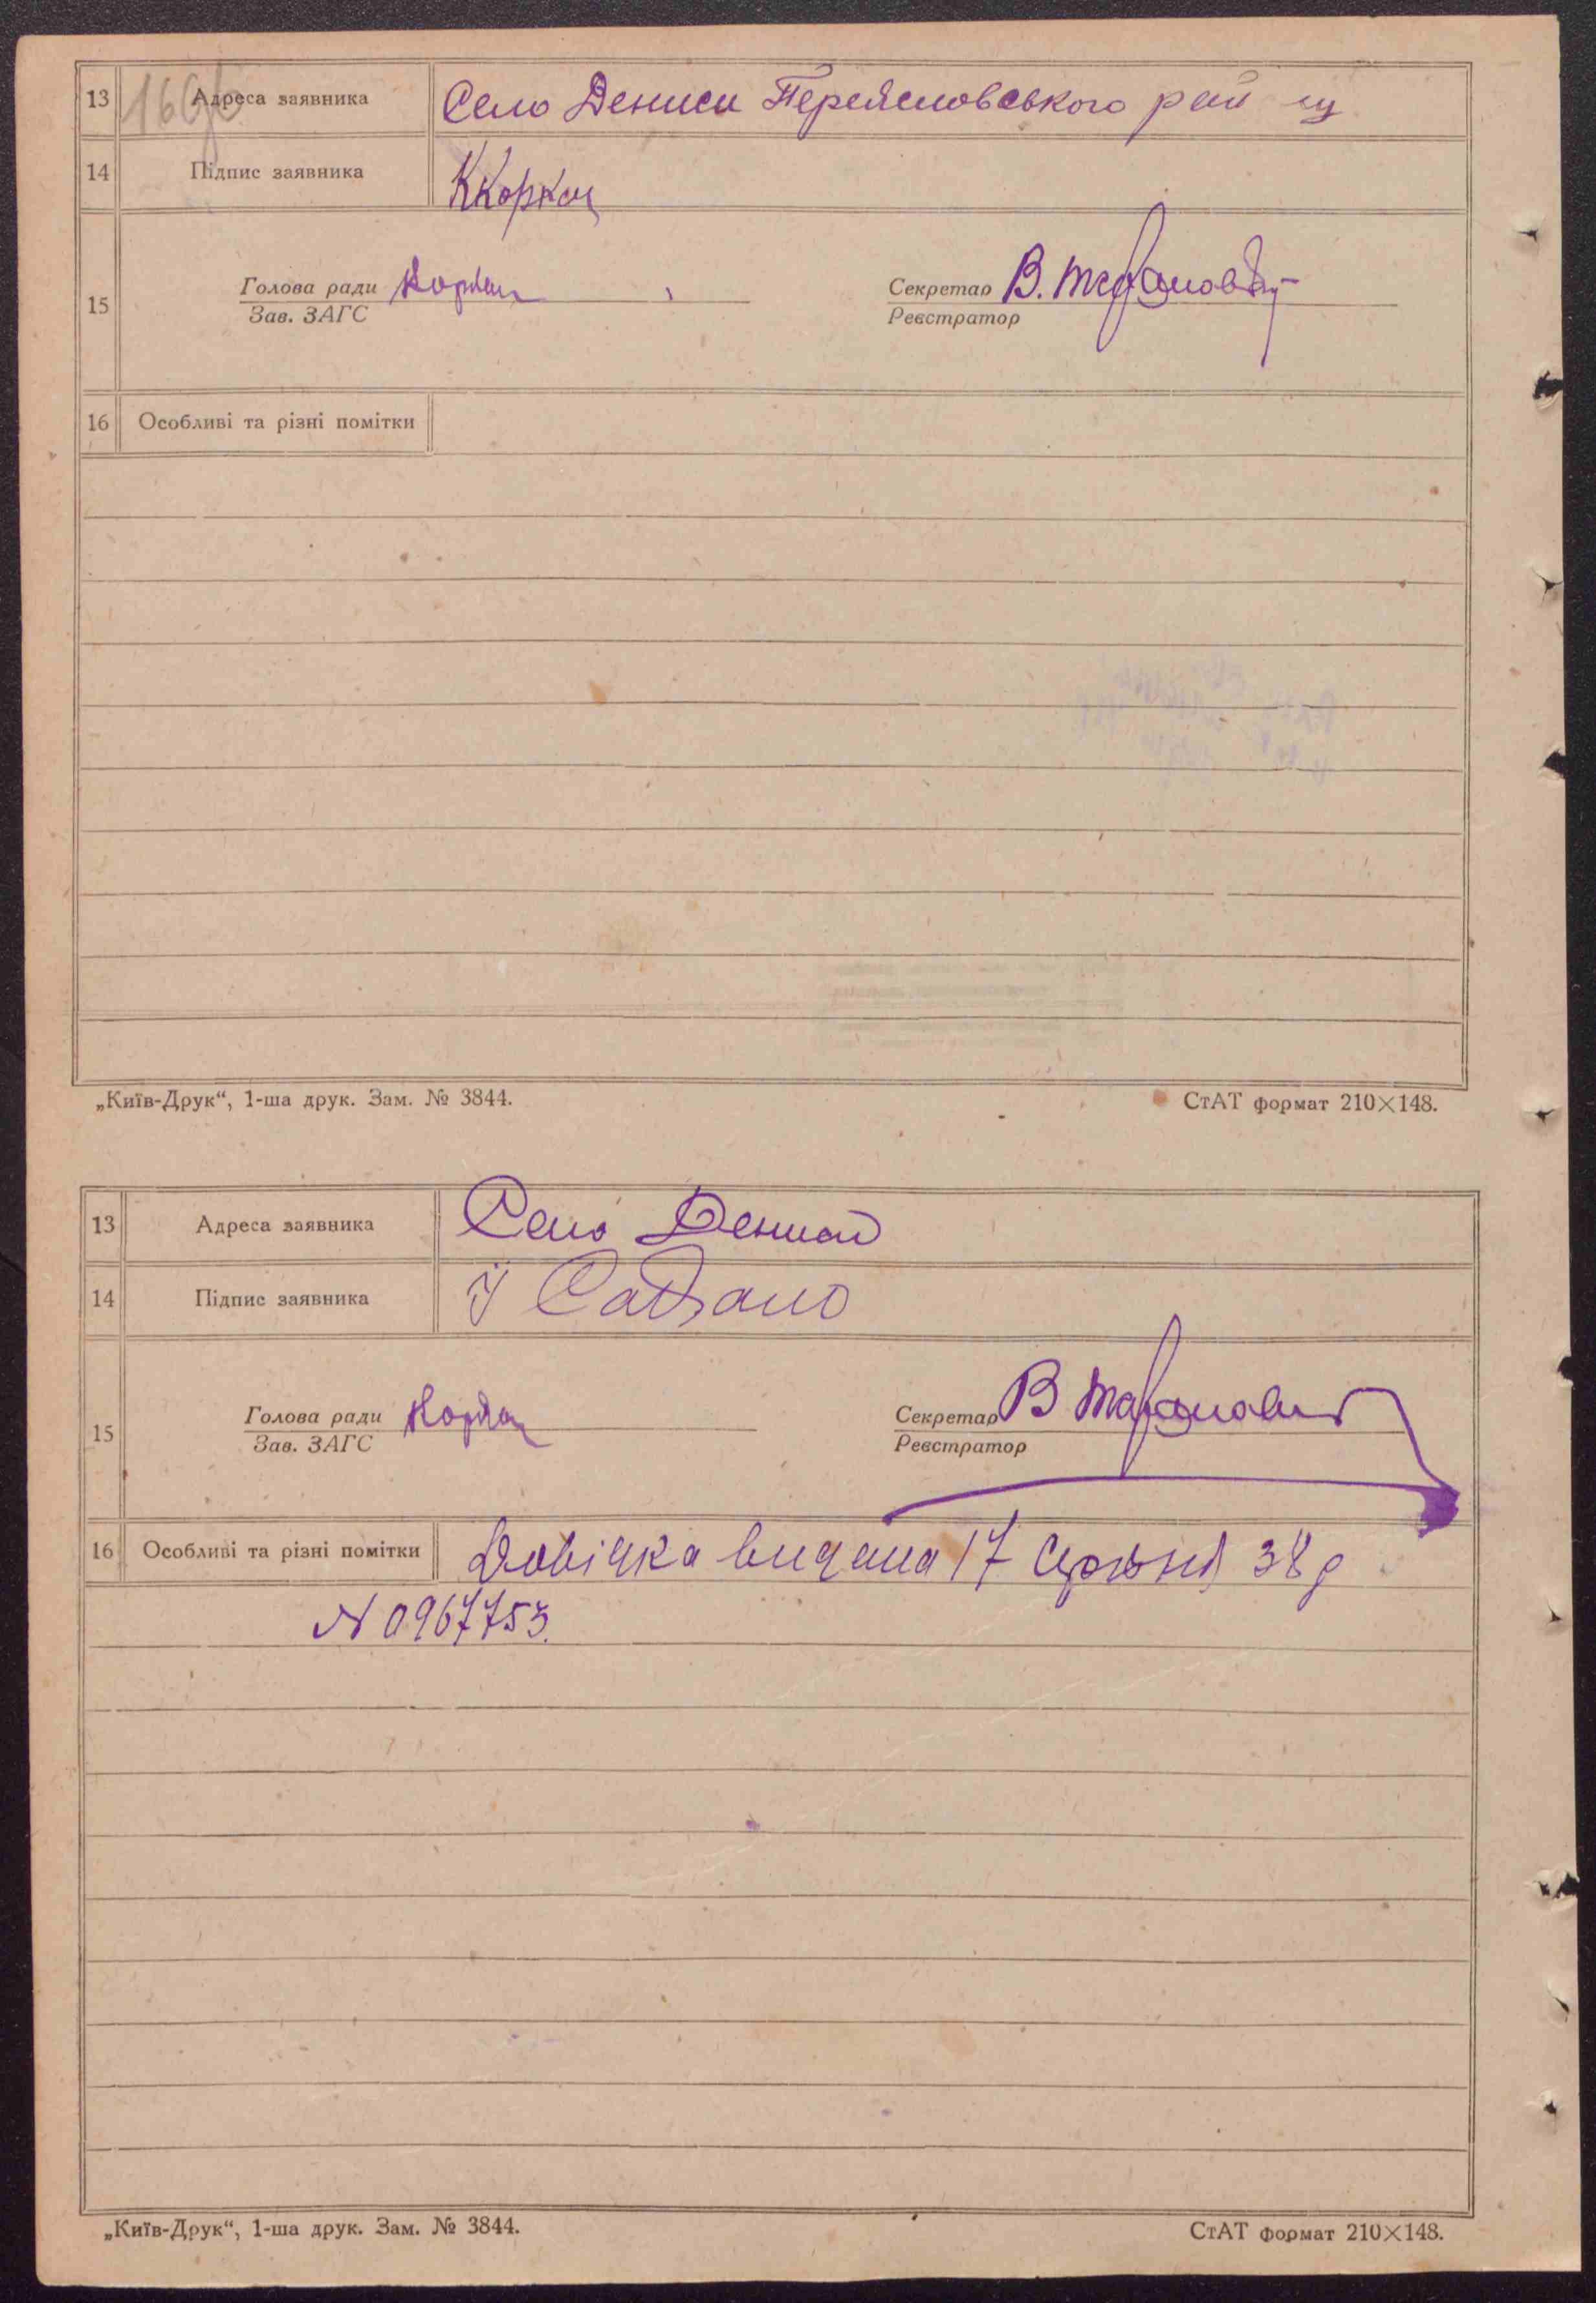 13 Адреса заявника Село Дениси Переяславського рай
14 Підпис заявника
15 Голова ради Секретар В.
Зав. ЗАГС Реєстратор
16 Особливі та різні помітки
„Київ-Друк“, 1-ша друк. Зам. № 3844. СтАТ формат 210×148.
13 Адреса заявника Село Дениси
14 Підпис заявника
15 Голова ради Секретар В
Зав. ЗАГС Реєстратор
16 Особливі та різні помітки Довідка видана 17 Серпня 38 р
N 0967753.
„Київ-Друк“, 1-ша друк. Зам. № 3844. СтАТ формат 210×148.